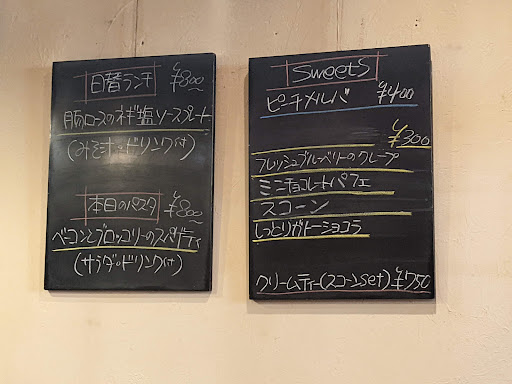 日替ランチ ¥800
豚ロースのネギ塩ソースプレート
(みそ汁・ドリンク付)
本日のパスタ ¥800
ベーコンとブロッコリーのスパゲティ
(サラダ・ドリンク付)
Sweets
ピーチメルバ ¥400
¥300
フレッシュブルーベリーのクレープ
ミニチョコレートパフェ
スコーン
しっとりガトーショコラ
クリームティー(スコーンset) ¥750